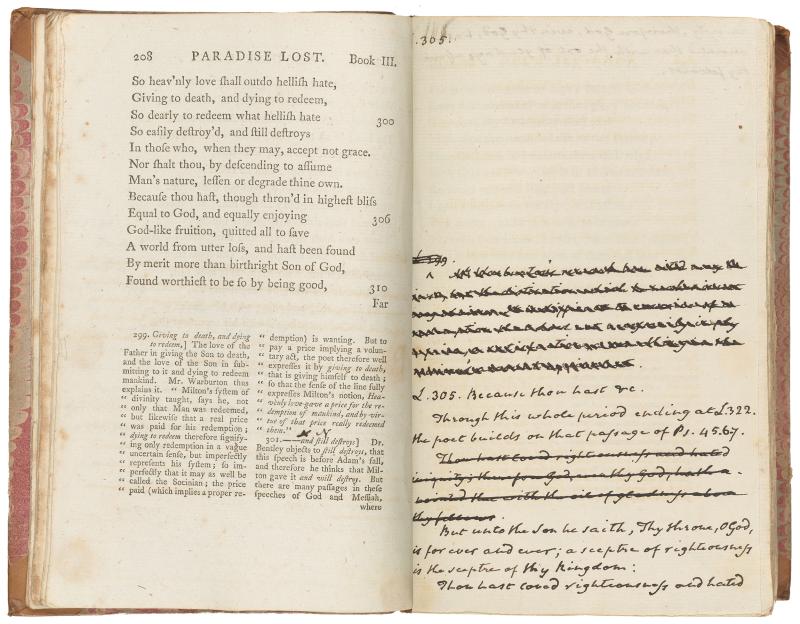 208 PARADISE LOST. Book III.
So heav'nly love ſhall outdo helliſh hate,
Giving to death, and dying to redeem,
So dearly to redeem what helliſh hate 300
So eaſily deſtroy'd, and ſtill deſtroys
In thoſe who, when they may, accept not grace.
Nor ſhalt thou, by deſcending to aſſume
Man's nature, leſſen or degrade thine own.
Becauſe thou haſt, though thron'd in higheſt bliſs
Equal to God, and equally enjoying 306
God-like fruition, quitted all to ſave
A world from utter loſs, and haſt been found
By merit more than birthright Son of God,
Found worthieſt to be ſo by being good, 310
Far
299. Giving to death, and dying
to redeem,] The love of the
Father in giving the Son to death,
and the love of the Son in ſub-
mitting to it and dying to redeem
mankind. Mr. Warburton thus
explains it. " Milton's ſyſtem of
" divinity taught, ſays he, not
" only that Man was redeemed,
" but likewiſe that a real price
" was paid for his redemption;
" dying to redeem therefore ſignify-
" ing only redemption in a vague
" uncertain ſenſe, but imperfectly
" repreſents his ſyſtem; ſo im-
" perfectly that it may as well be
" called the Socinian; the price
" paid (which implies a proper re-
" demption) is wanting. But to
" pay a price implying a volun-
" tary act, the poet therefore well
" expreſſes it by giving to death,
" that is giving himſelf to death;
" ſo that the ſenſe of the line fully
" expreſſes Milton's notion, Hea-
" v'nly love gave a price for the re-
" demption of mankind, and by vir-
" tue of that price really redeemed
" them."
301.——and ſtill deſtroys] Dr.
Bentley objects to ſtill deſtroys, that
this ſpeech is before Adam's fall,
and therefore he thinks that Mil-
ton gave it and will deſtroy. But
there are many paſſages in theſe
ſpeeches of God and Meſſiah,
where
.305.
L.305. Because thou hast &c.
Through this whole period ending at L.322.
the poet builds on that passage of Ps. 45.6.7.
Thou hast loved righteousness and hated
iniquity; therefore God, even thy God, hath a-
nointed thee with the oil of gladness above
thy fellows.
But unto the Son he saith, Thy throne, O God,
is for ever and ever; a sceptre of righteousness
is the sceptre of thy Kingdom:
Thou hast loved righteousness and hated